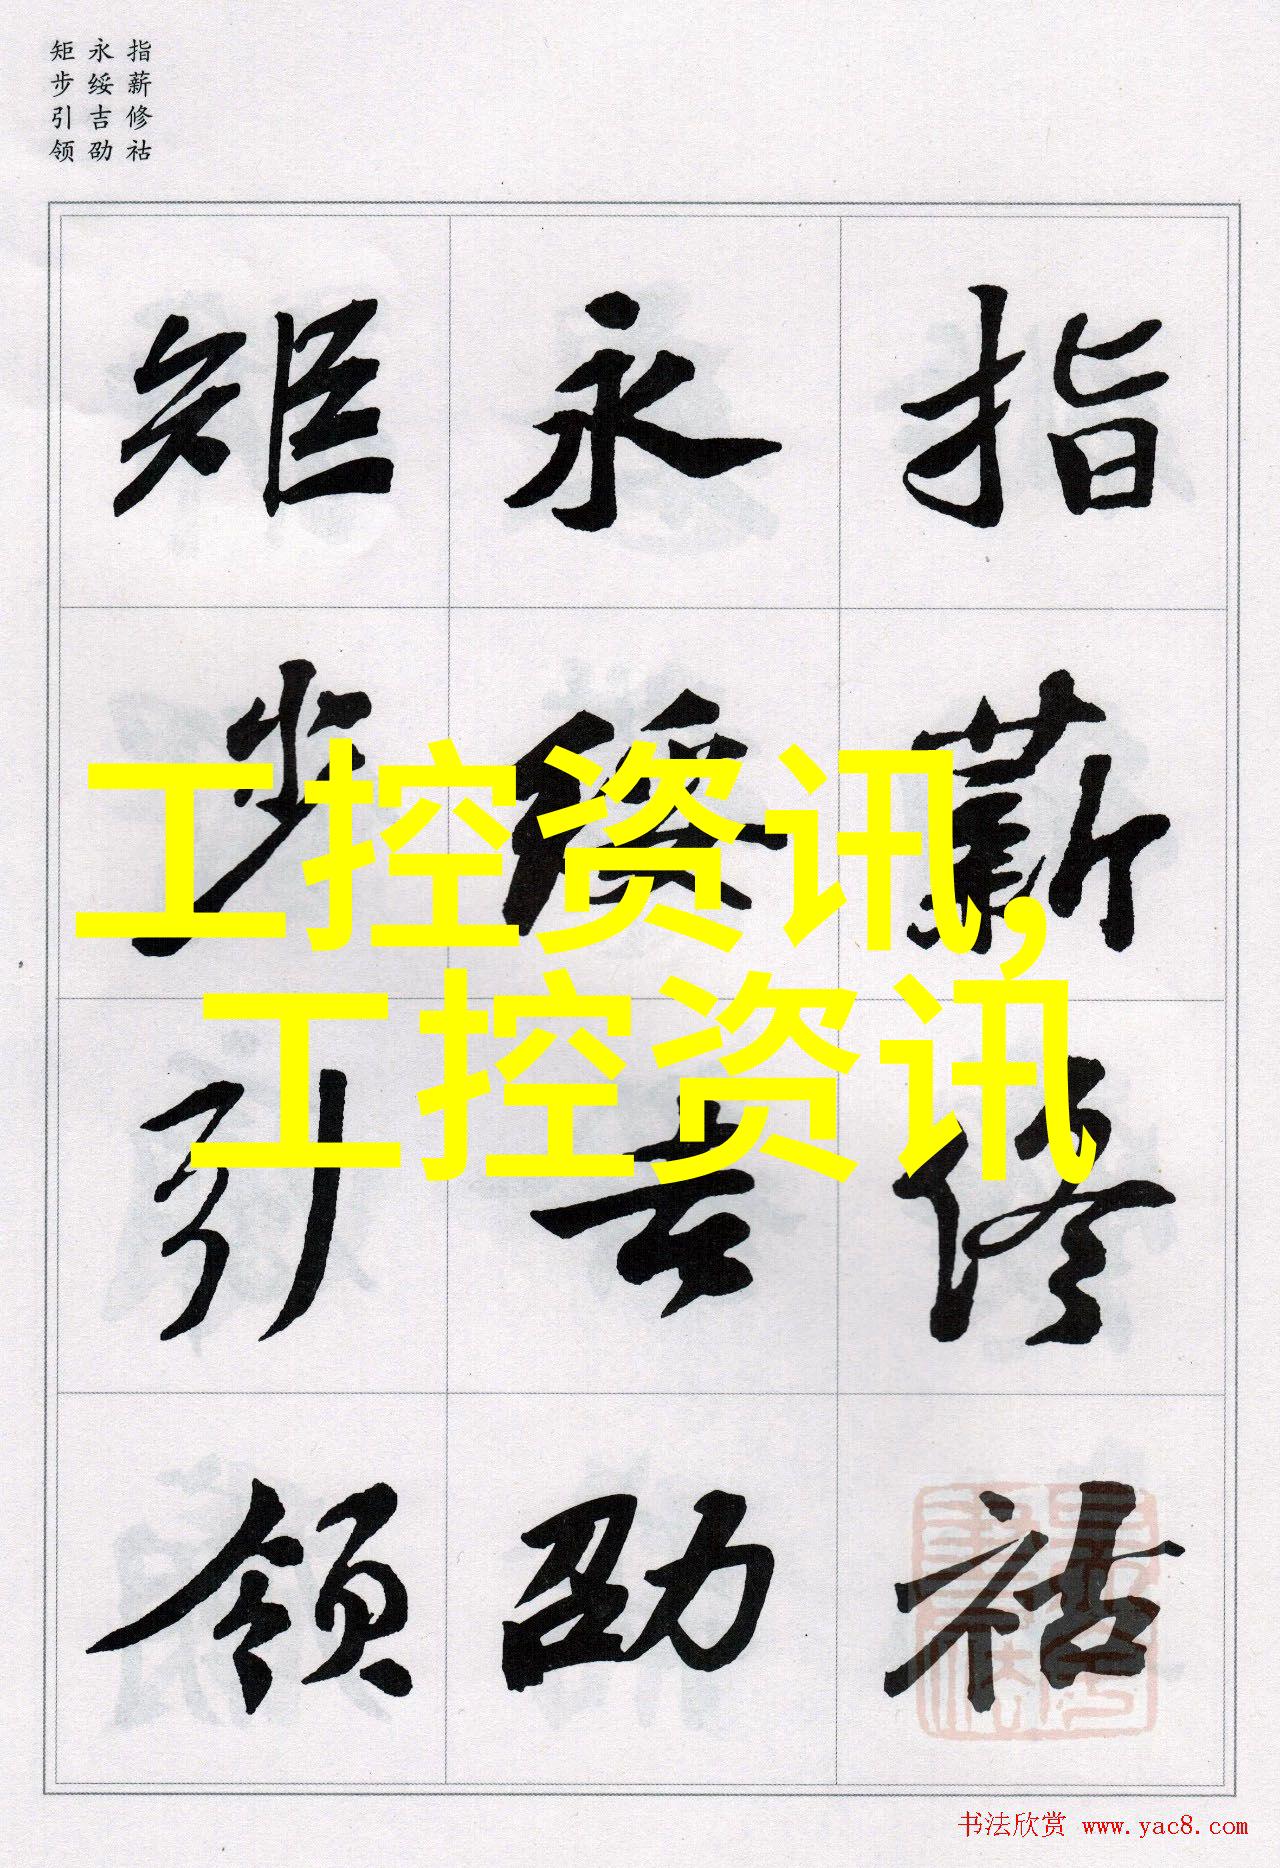 指薪修祜
永绥吉劭
矩步引领
指薪修祜
永绥吉劭
矩步引领
工控资讯,
工控资讯
书法欣赏 www.yac8.com